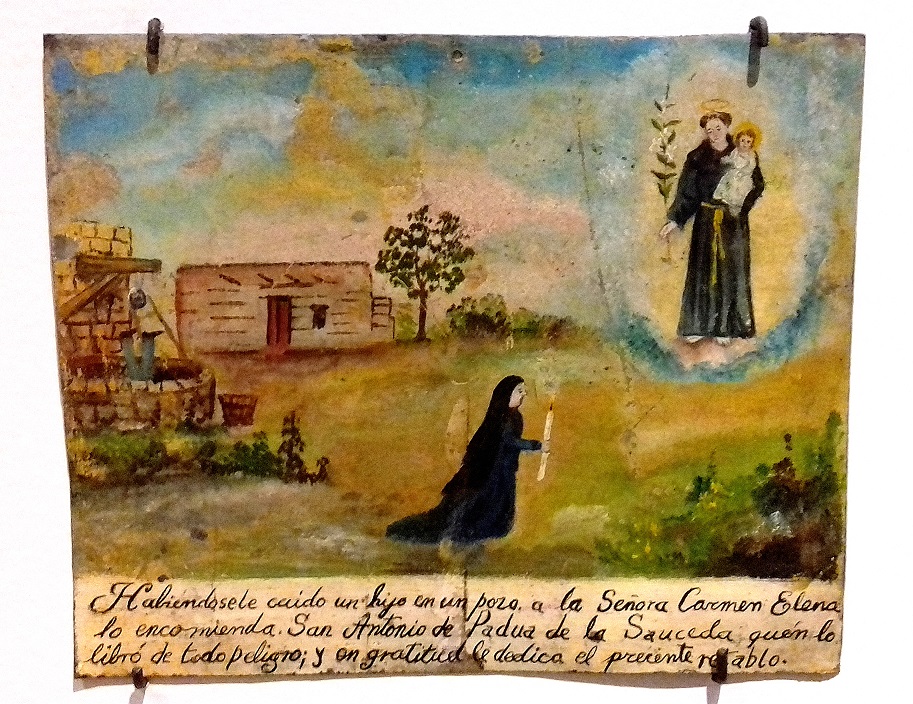 Habiendosele caido un hijo en un pozo, a la Señora Carmen Elena
lo encomienda. San Antonio de Padua de la Sauceda quén lo
libró de todo peligro; y en gratitud le dedica el precente retablo.